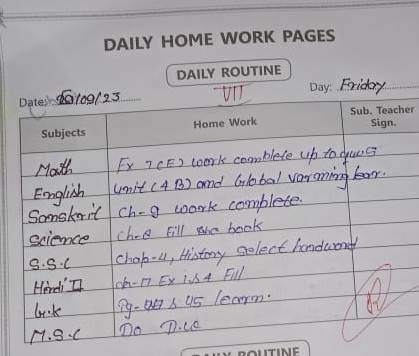 DAILY HOME WORK PAGES
DAILY ROUTINE
VII
Date: /09/23 Day: Friday
Subjects Home Work Sub. Teacher Sign.
Math Ex 7(E) work complete up to ques
English unit (4 B) and Global varming lear.
Samskrit Ch-9 work complete.
Science Ch-8 Fill book
S.S.C Chap-4, History select handword
Hindi II ch-17 Ex 1,5,4 Fill
G.K Pg- & 45 learn.
M.S.C Do D.W
ROUTINE